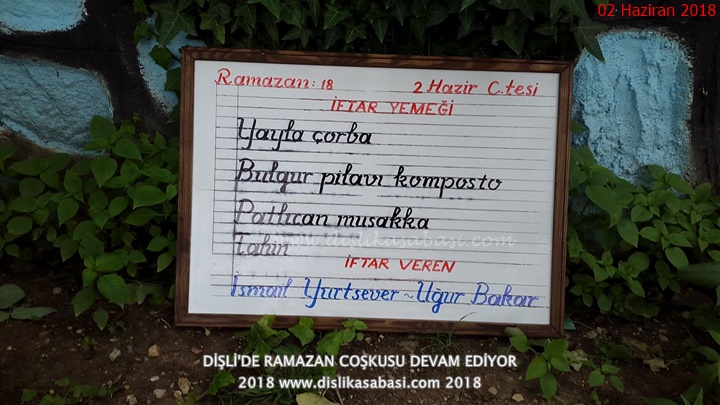 02 Haziran 2018
Ramazan: 18 2 Hazir C.tesi
İFTAR YEMEĞİ
Yayla çorba
Bulgur pilavı komposto
Patlıcan musakka
www.dislikasabasi.com
Tahin
İFTAR VEREN
İsmail Yurtsever ~ Uğur Bakar
DİŞLİ'DE RAMAZAN COŞKUSU DEVAM EDİYOR
2018 www.dislikasabasi.com 2018